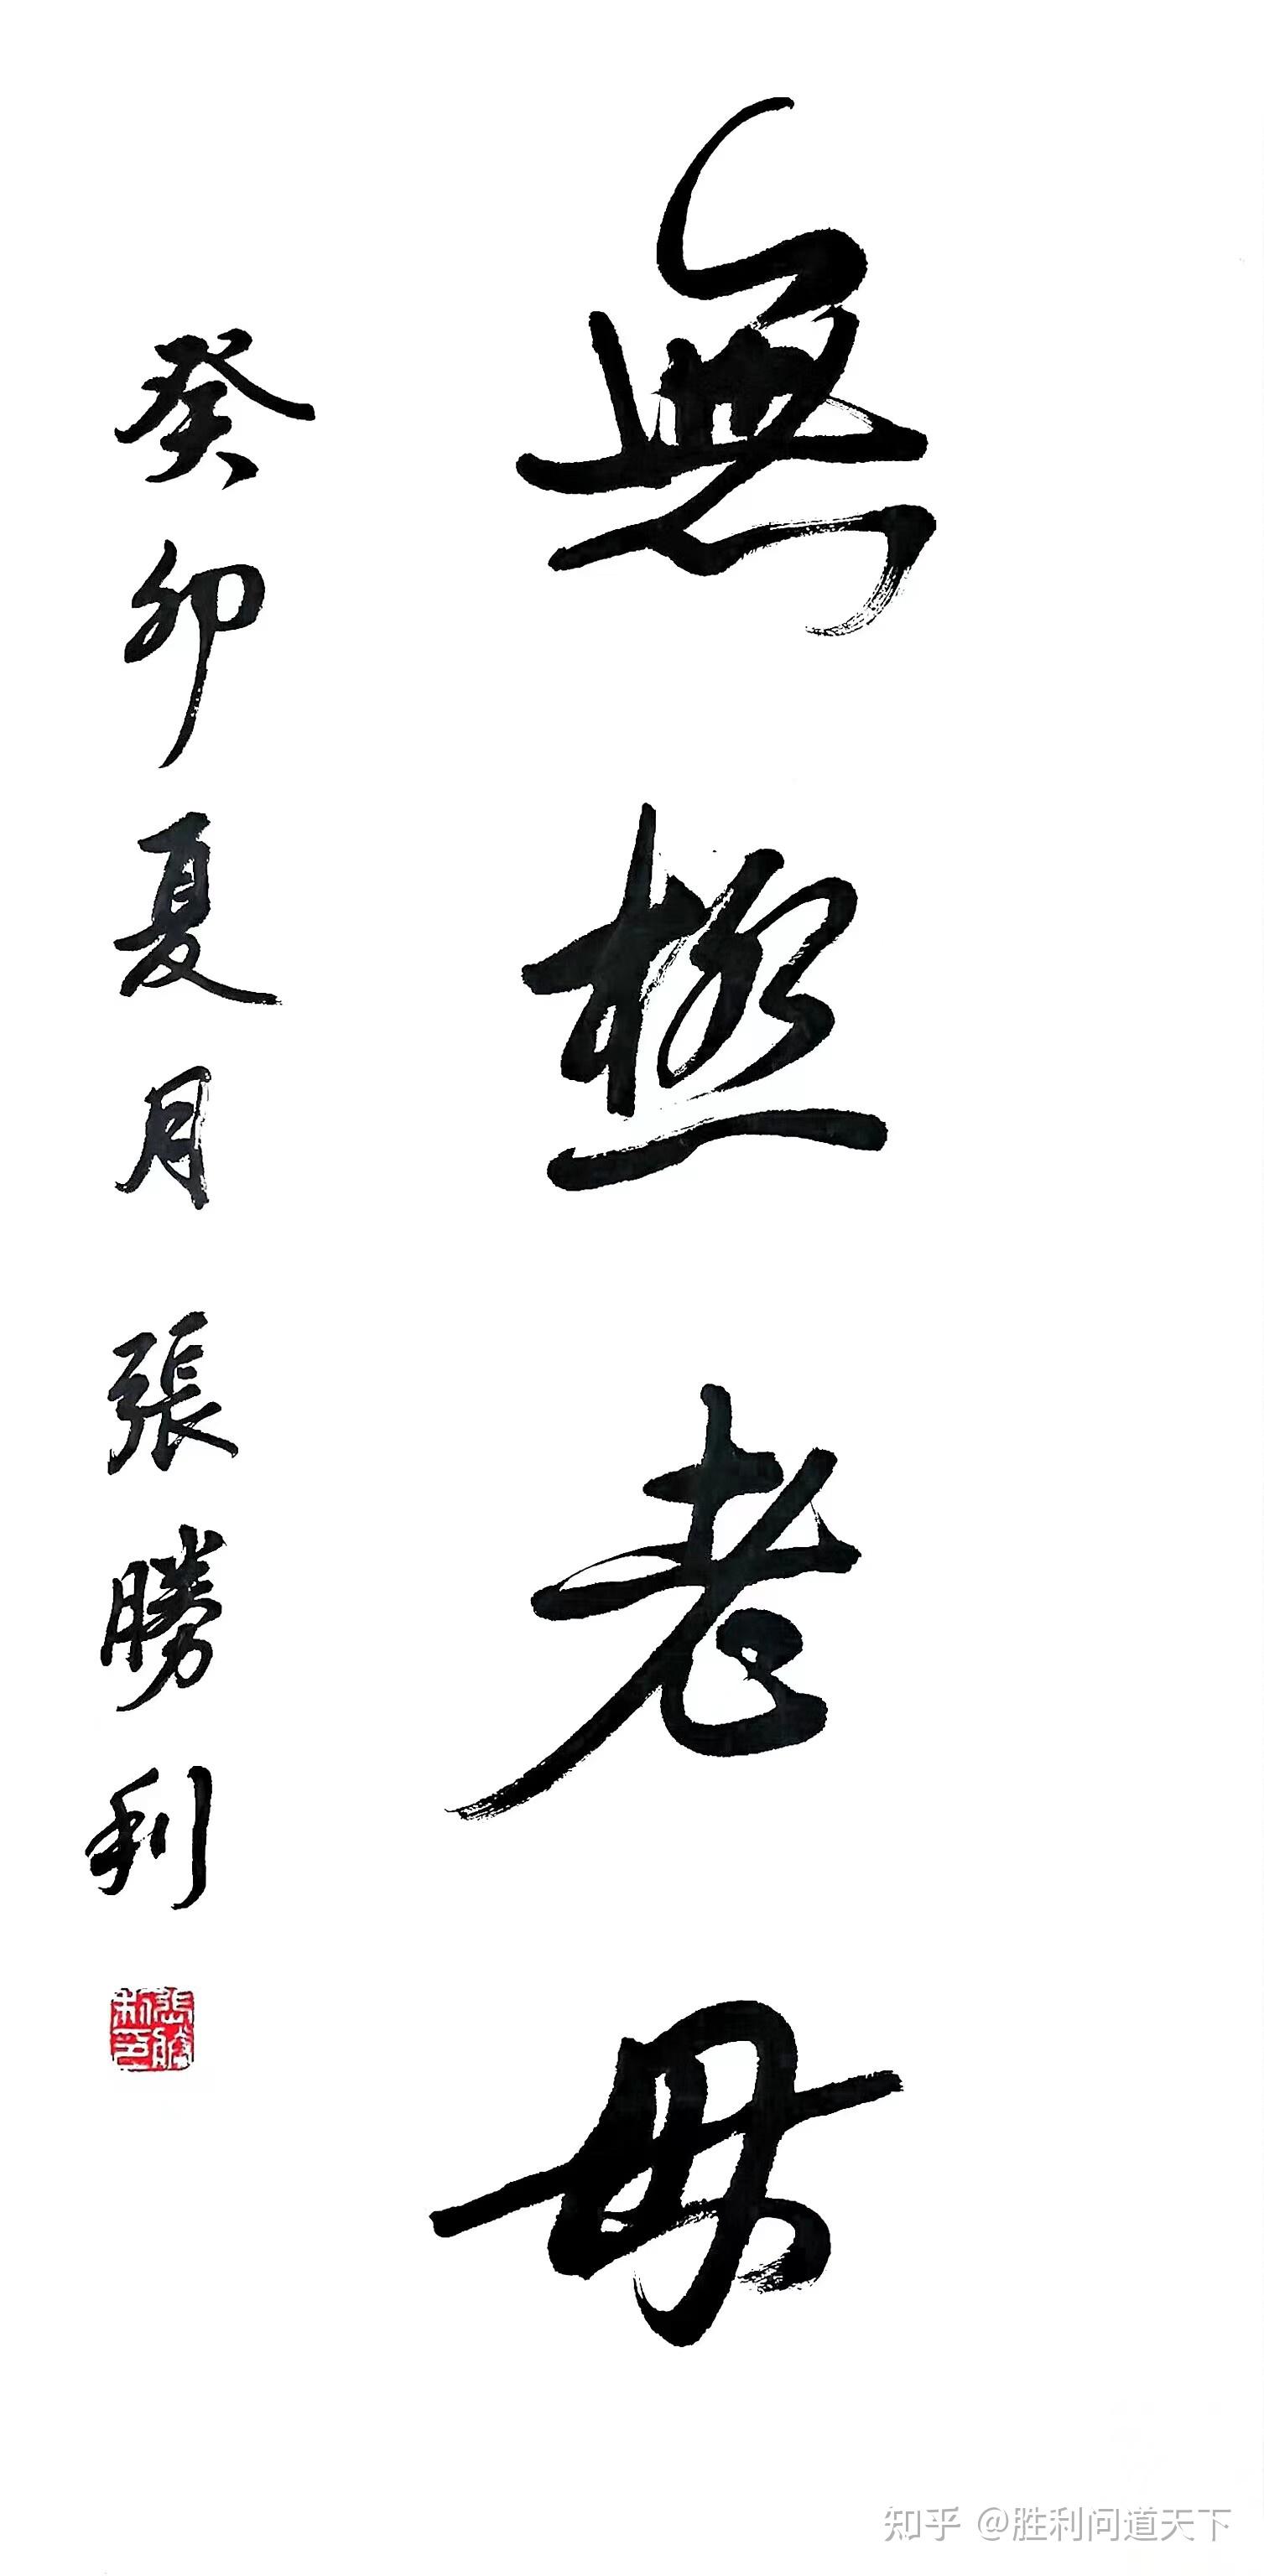 無極老母
癸卯夏月張勝利
張勝利印
知乎 @胜利问道天下